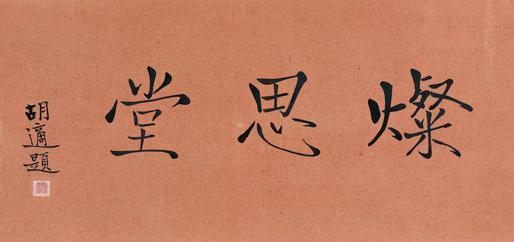 燦思堂
胡適題